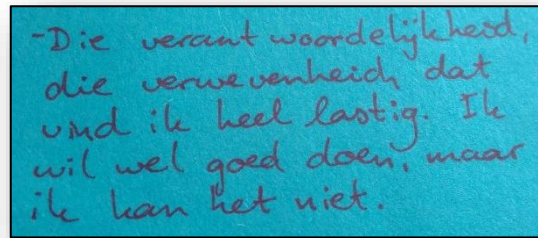 -Die verantwoordelijkheid,
die verwevenheid, dat
vind ik heel lastig. Ik
wil wel goed doen, maar
ik kan het niet.